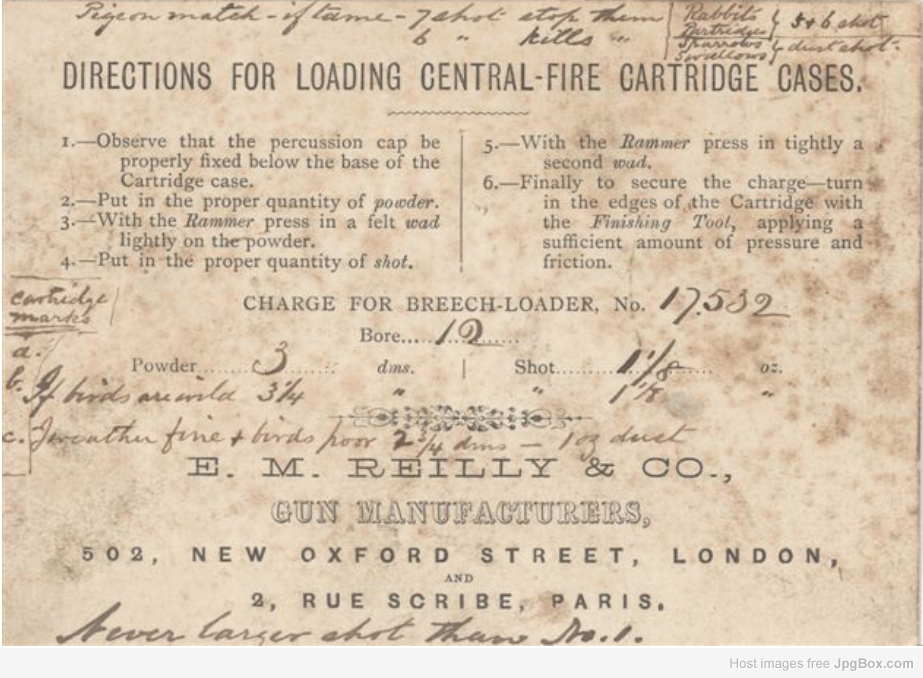 Pigeon match - if tame - 7 shot stop them
6 " kills "
Rabbits
Partridges } 5 & 6 shot
Sparrows
Swallows } dust shot.
DIRECTIONS FOR LOADING CENTRAL-FIRE CARTRIDGE CASES.
1.—Observe that the percussion cap be
properly fixed below the base of the
Cartridge case.
2.—Put in the proper quantity of powder.
3.—With the Rammer press in a felt wad
lightly on the powder.
4.—Put in the proper quantity of shot.
5.—With the Rammer press in tightly a
second wad.
6.—Finally to secure the charge—turn
in the edges of the Cartridge with
the Finishing Tool, applying a
sufficient amount of pressure and
friction.
cartridge
marks
CHARGE FOR BREECH-LOADER, No. 17.532
Bore....12........
a.
Powder........3........ dms. | Shot........1 1/8........ oz.
b. If birds are wild 3 1/4 " " 1 1/8 "
c. If weather fine & birds poor 2 3/4 dms — 1 oz dust
E. M. REILLY & CO.,
GUN MANUFACTURERS,
502, NEW OXFORD STREET, LONDON,
AND
2, RUE SCRIBE, PARIS.
Never larger shot than No. 1.
Host images free JpgBox.com